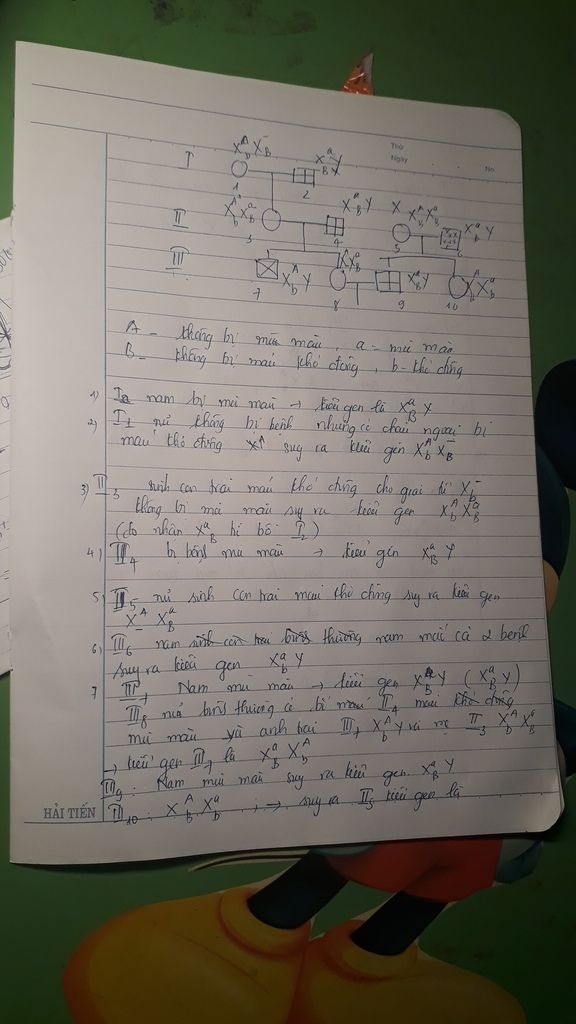 Thứ
Ngày
No.
I
X^A_b X^-_B
X^a_B Y
1
2
II
X^a_B Y
X
X^a_b Y
3
4
5
6
III
X^A_b Y
X^a_B Y
X^A_b X^a_b
7
8
9
10
A - không bị mù màu, a - mù màu
B - không bị máu khó đông, b - khó đông
1) I2 nam bị mù màu → kiểu gen là X^a_B Y
2) I1 nữ không bị bệnh nhưng có cháu ngoại bị
máu khó đông suy ra kiểu gen X^A_b X^-_B
3) II3 sinh con trai máu khó đông cho giao tử X^-_b
không bị mù màu suy ra kiểu gen X^A_b X^a_B
(do nhận X^a_B từ bố I2)
4) II4 bị bệnh mù màu → kiểu gen X^a_B Y
5) II5 nữ sinh con trai máu khó đông suy ra kiểu gen
X^A_- X^a_B
6) II6 nam thường nam mắc cả 2 bệnh
suy ra kiểu gen X^a_b Y
7 III7 Nam mù màu → kiểu gen Y (X^a_B Y)
III8 nữ bình thường có bố II4
mù màu và anh trai III7 X^A_b Y và mẹ II3 X^A_b X^a_B
→ kiểu gen là X^a_B X^A_b
III9: Nam mù màu suy ra kiểu gen X^a_B Y
HẢI TIẾN
III10: X^A_b X^a_b → suy ra II5 kiểu gen là